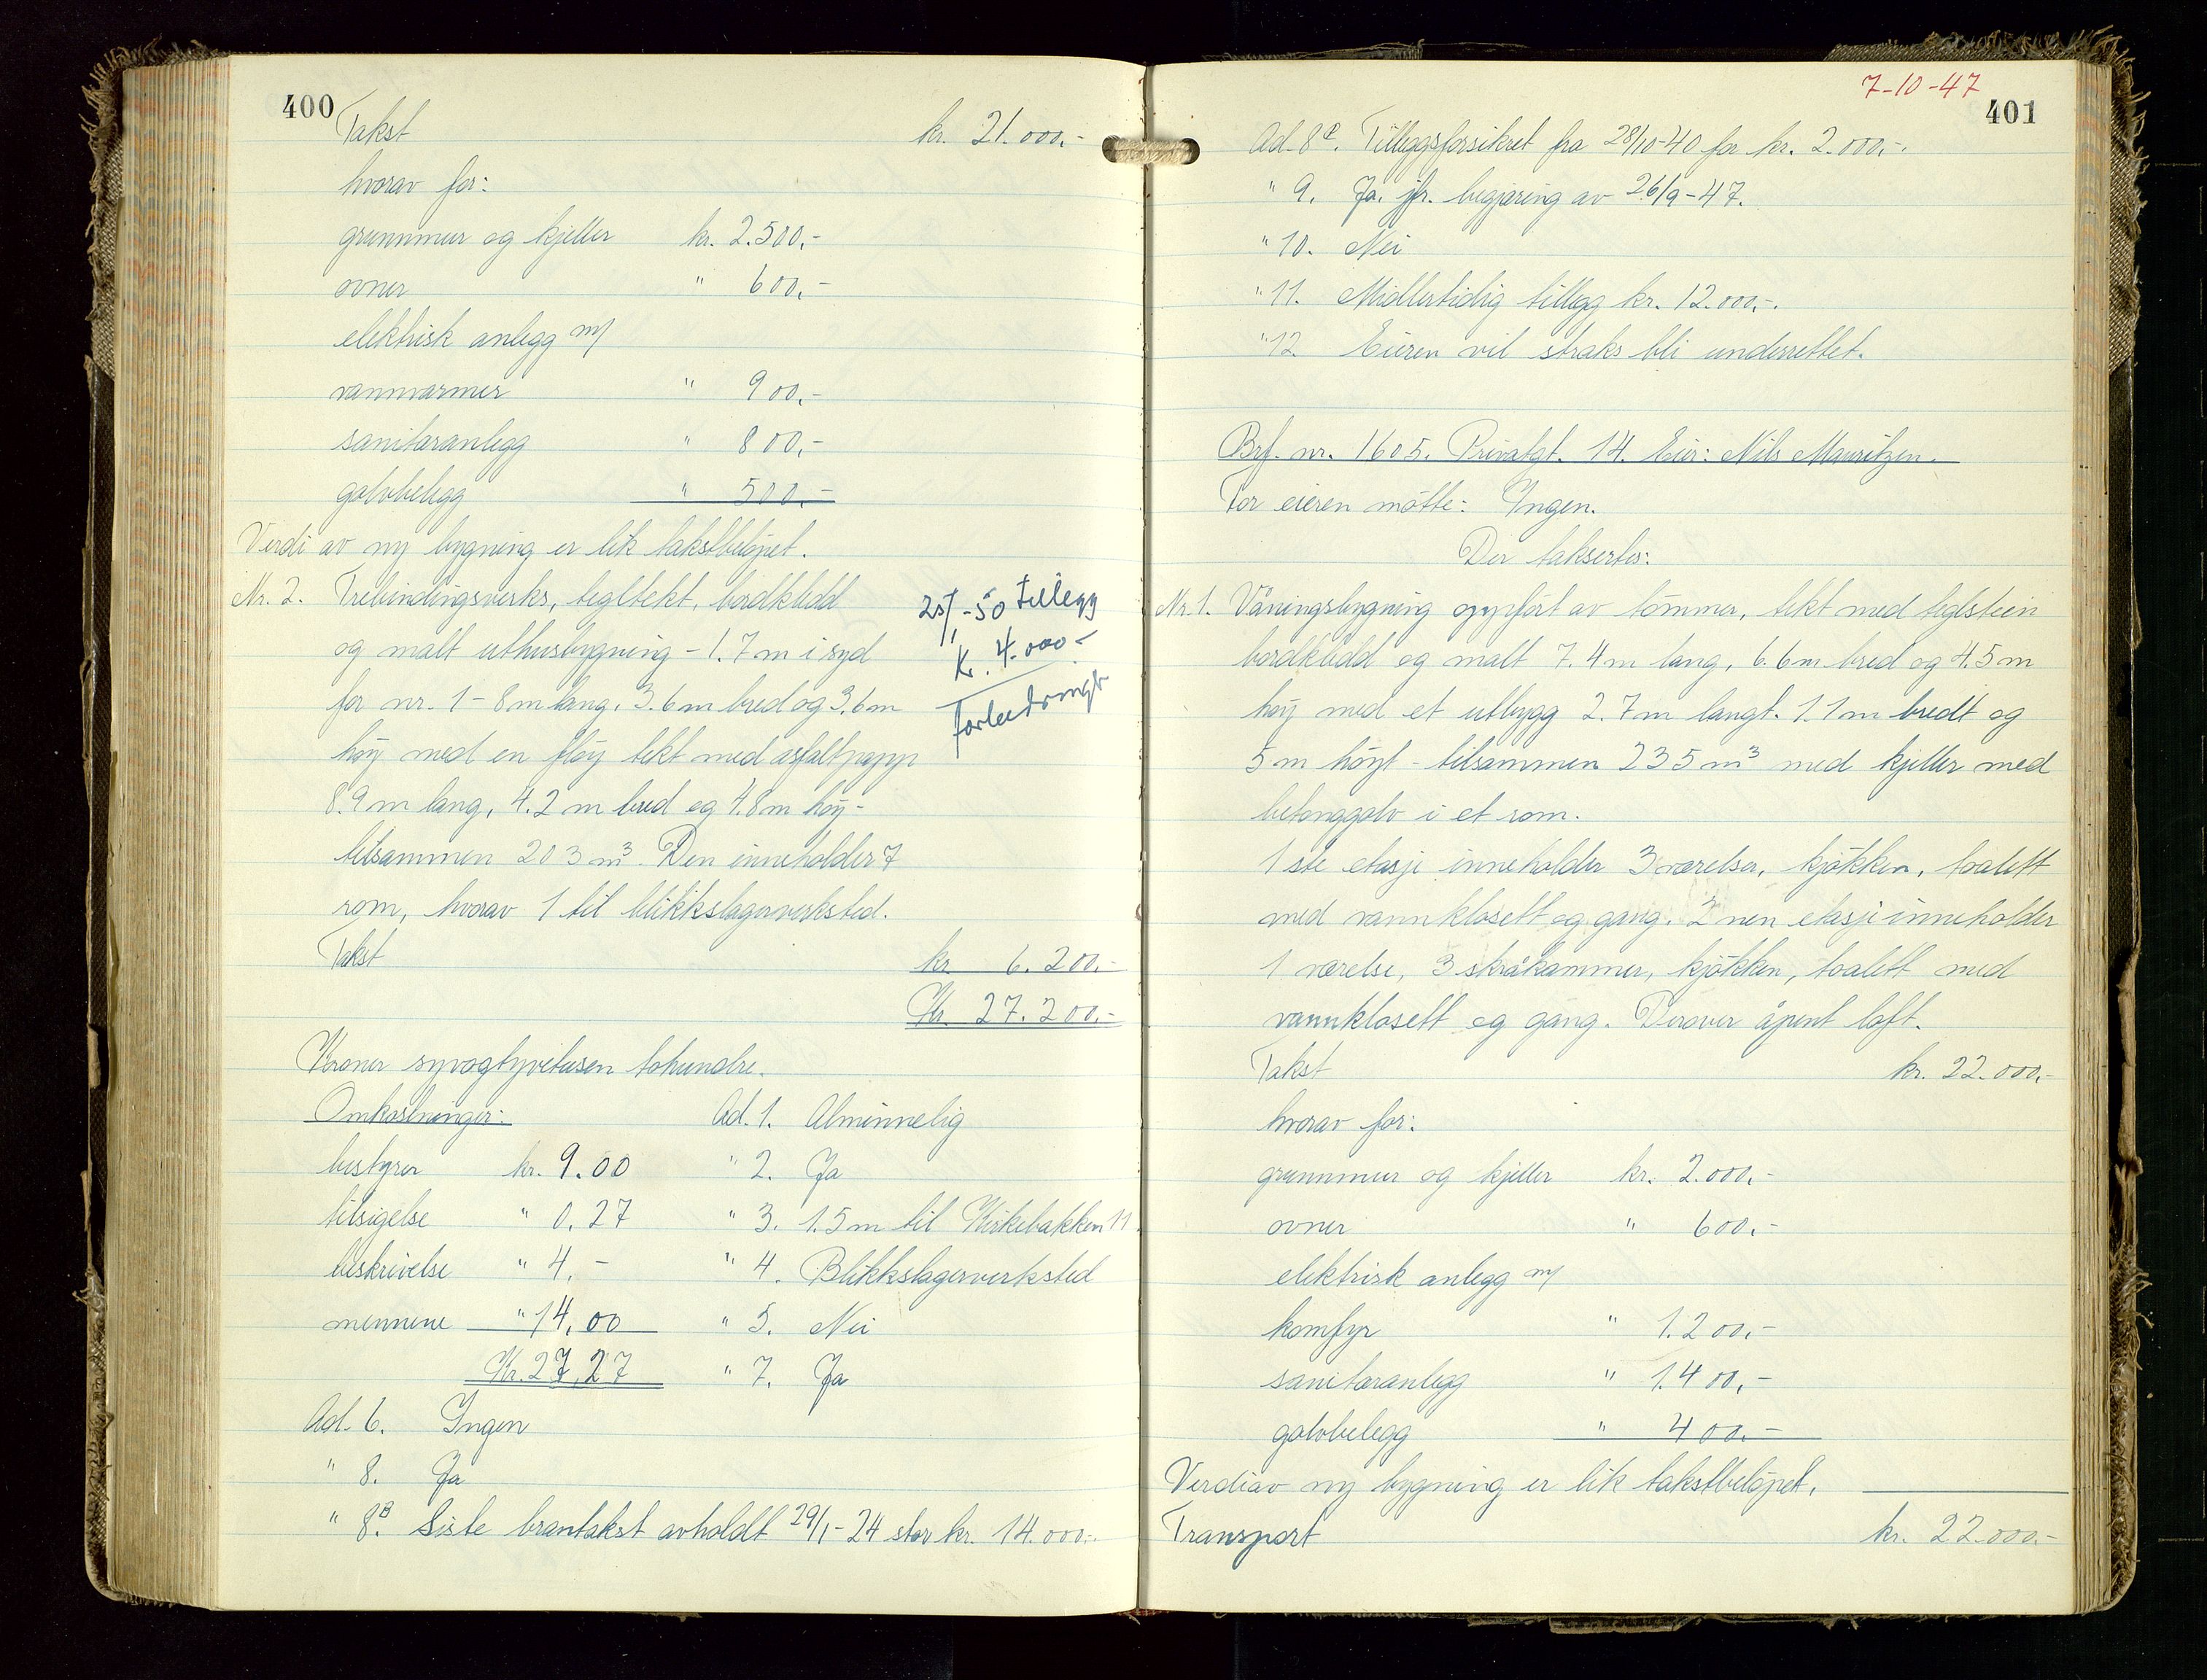 400
Takst kr. 21.000.-
hvorav for:
grunnmur og kjeller kr. 2.500,-
ovner " 600,-
elektrisk anlegg m/
vannvarmer " 900,-
sanitæranlegg " 800,-
golvbelegg " 500.-
Verdi av ny bygning er lik takstbeløpet.
Nr. 2. Trebindingsverks, tegltekt, bordkledd
og malt uthusbygning - 1.7 m i syd
for nr. 1 - 8 m lang, 3.6 m bred og 3.6 m
høy med en fløy tekt med asfaltpapp
8.9 m lang, 4.2 m bred og 4.8 m høy -
tilsammen 203 m³. Den inneholder 7
rom, hvorav 1 til blikkslagerverksted.
-50 tillegg
Kr. 4.000-
Takst kr 6.200.-
Kr. 27.200.-
Kroner syvogtyvetusen tohundre.
Omkostninger: Ad. 1. Alminnelig
bestyrer kr. 9.00 " 2. Ja
tilsigelse " 0.27 " 3. 1.5 m til Kirkebakken 11.
beskrivelse " 4.- " 4. Blikkslagerverksted
mennene " 14,00 " 5. Nei
Kr. 27,27 " 7. Ja
Ad. 6. Ingen
" 8. Ja
" 8B. Siste brantakst avholdt 29/1-24 stor kr. 14.000.-
7-10-47
401
Ad. 8c. Tilleggsforsikret fra 28/10-40 for kr. 2.000,-.
" 9. Ja. jfr. begjæring av 26/9-47.
" 10. Nei
" 11. Midlertidig tillegg kr. 12.000,-.
" 12 Eieren vil straks bli underrettet.
Brf. nr. 1605. Privatgt. 14. Eier: Nils Mauritzen.
For eieren møtte: Ingen.
Der taksertes:
Nr. 1. Våningsbygning oppført av tømmer, tekt med teglstein
bordkledd og malt 7.4 m lang, 6.6 m bred og 4.5 m
høy med et utbygg 2.7 m langt. 1.1 m bredt og
5 m høyt - tilsammen 235 m³ med kjeller med
betonggolv i et rom.
1 ste etasje inneholder 3 værelser, kjøkken, toalett
med vannklosett og gang. 2 nen etasje inneholder
1 værelse, 3 skråkammer, kjøkken, toalett med
vannklosett og gang. Derover åpent loft.
Takst kr. 22.000,-
hvorav for:
grunnmur og kjeller kr. 2.000,-
ovner " 600.-
elektrisk anlegg m/
komfyr " 1.200,-
sanitæranlegg " 1.400,-
golvbelegg " 400.-
Verdi av ny bygning er lik takstbeløpet.
Transport kr. 22.000.-